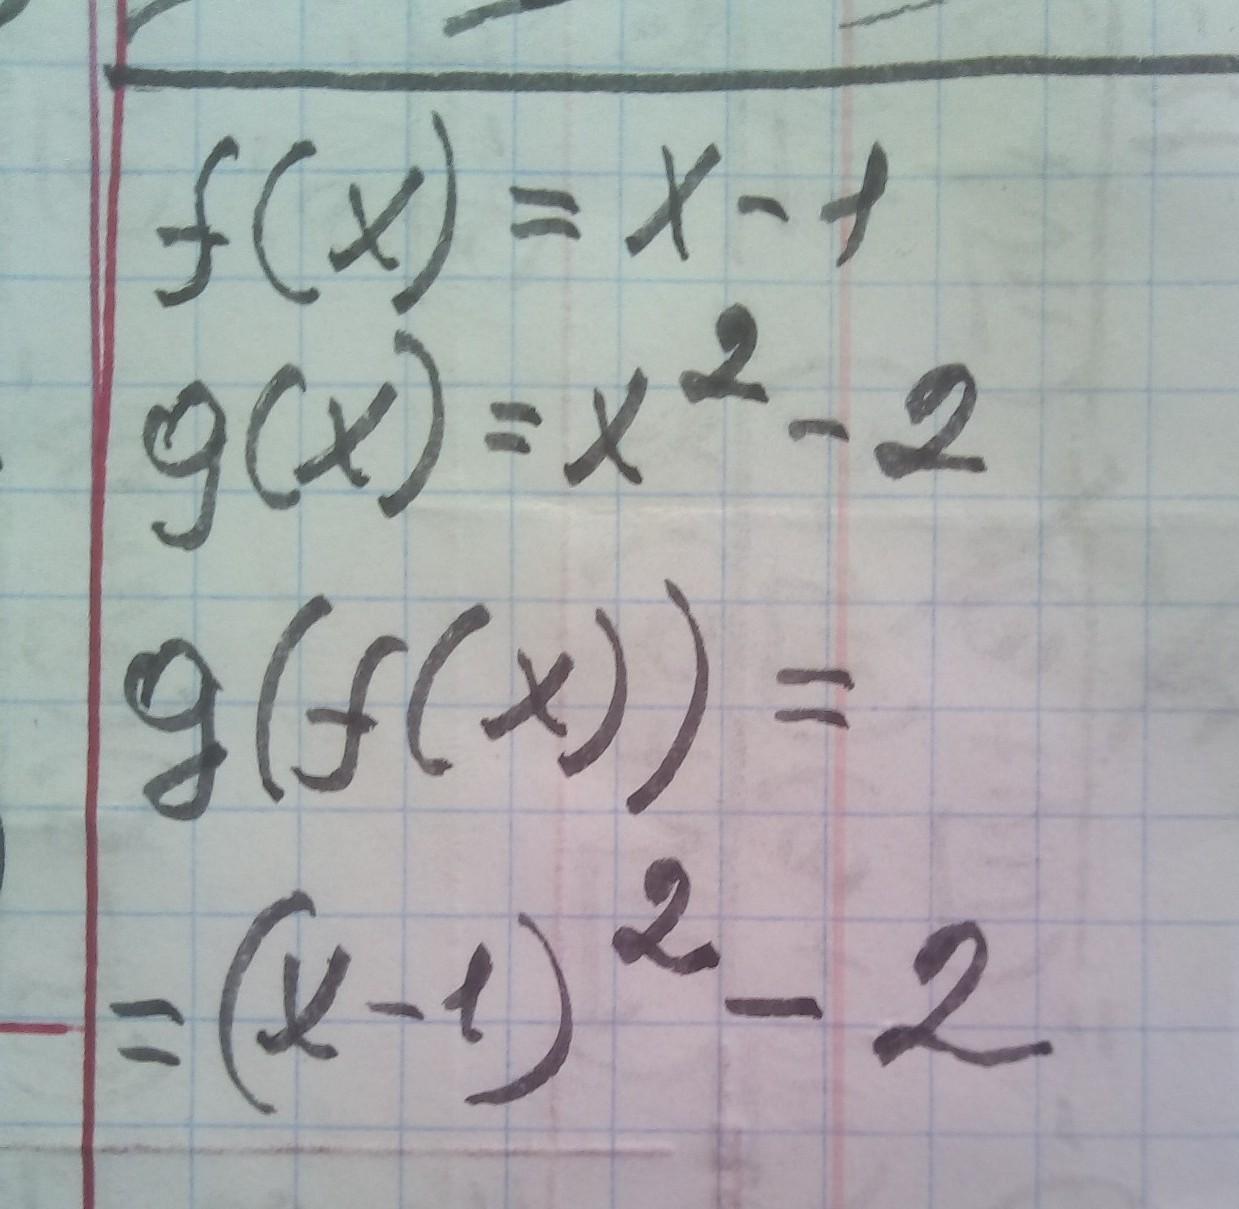 f(x) = x - 1
g(x) = x² - 2
g(f(x)) =
= (x - 1)² - 2